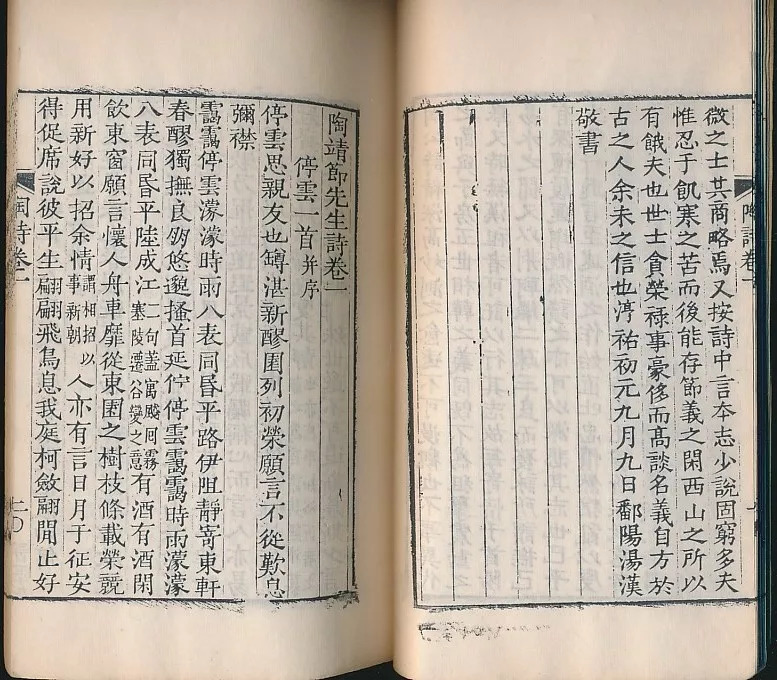 微之士共商略焉又按詩中言本志少說固窮多夫
惟忍于飢寒之苦而後能存節義之閑西山之所以
有餓夫也世士貪榮祿事豪侈而髙談名義自方於
古之人余未之信也淳祐初元九月九日鄱陽湯漢
敬書
陶詩卷一
陶靖節先生詩卷一
停雲一首并序
停雲思親友也罇湛新醪園列初榮願言不從歎息
彌襟
靄靄停雲濛濛時雨八表同昏平路伊阻靜寄東軒
春醪獨撫良朋悠邈搔首延佇停雲靄靄時雨濛濛
八表同昏平陸成江二句蓋寓飇回霧塞陵遷谷變之意有酒有酒閑
飲東窗願言懷人舟車靡從東園之樹枝條載榮競
用新好以招余情謂相招以事新朝人亦有言日月于征安
得促席說彼平生翩翩飛鳥息我庭柯斂翮閒止好
陶詩卷一